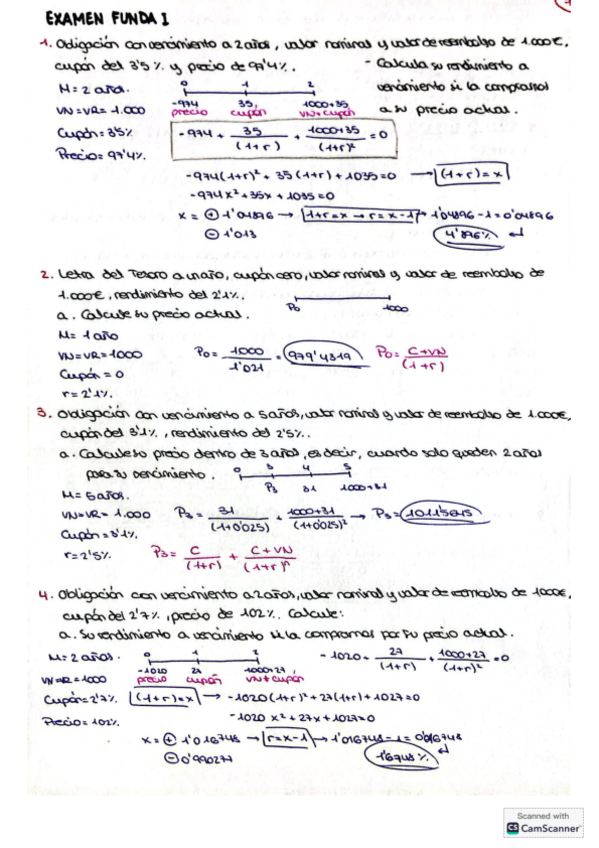 EXAMEN FUNDA I
1. Obligación con vencimiento a 2 años, valor nominal y valor de reembolso de 1.000€,
cupón del 3'5% y precio de 97'4%. - Calcula su rendimiento a
M= 2 años. 0 1 2 vencimiento si la compramos
VN=VR= 1.000 -974 35, 1000+35 a su precio actual.
precio cupón VN+cupón
Cupón= 3'5% -974 + 35/(1+r) + 1000+35/(1+r)² = 0
Precio= 97'4%.
-974(1+r)² + 35(1+r) + 1035 = 0 → (1+r)=x
-974x² + 35x + 1035 = 0
x = ⊕ 1'04896 → 1+r=x → r=x-1 → 1'04896 - 1 = 0'04896
⊖ -1'013 4'896%
2. Letra del Tesoro a un año, cupón cero, valor nominal y valor de reembolso de
1.000€, rendimiento del 2'1%.
a. Calcule su precio actual. P0 1000
M= 1 año
VN=VR=1000 P0 = 1000/1'021 = 979'4319 P0 = C+VN/(1+r)
Cupón = 0
r= 2'1%.
3. Obligación con vencimiento a 5 años, valor nominal y valor de reembolso de 1.000€,
cupón del 3'1%, rendimiento del 2'5%.
a. Calcule su precio dentro de 3 años, es decir, cuando solo queden 2 años
para su vencimiento. 0 3 4 5
M= 5 años. P3 31 1000+31
VN=VR= 1.000 P3 = 31/(1+0'025) + 1000+31/(1+0'025)² → P3 = 1011'5645
Cupón = 3'1%.
r= 2'5%. P3 = C/(1+r) + C+VN/(1+r)ⁿ
4. Obligación con vencimiento a 2 años, valor nominal y valor de reembolso de 1000€,
cupón del 2'7%, precio de 102%. Calcule:
a. Su rendimiento a vencimiento si la compramos por su precio actual.
M= 2 años. 0 1 2 -1020 + 27/(1+r) + 1000+27/(1+r)² = 0
-1020 27 1000+27,
VN=VR=1000 precio cupón VN+cupón
Cupón= 2'7%. (1+r)=x → -1020(1+r)² + 27(1+r) + 1027 = 0
Precio= 102%. -1020x² + 27x + 1027 = 0
x = ⊕ 1'016748 → r=x-1 → 1'016748 - 1 = 0'016748
⊖ 0'990277 1'6748%
Scanned with
CS CamScanner